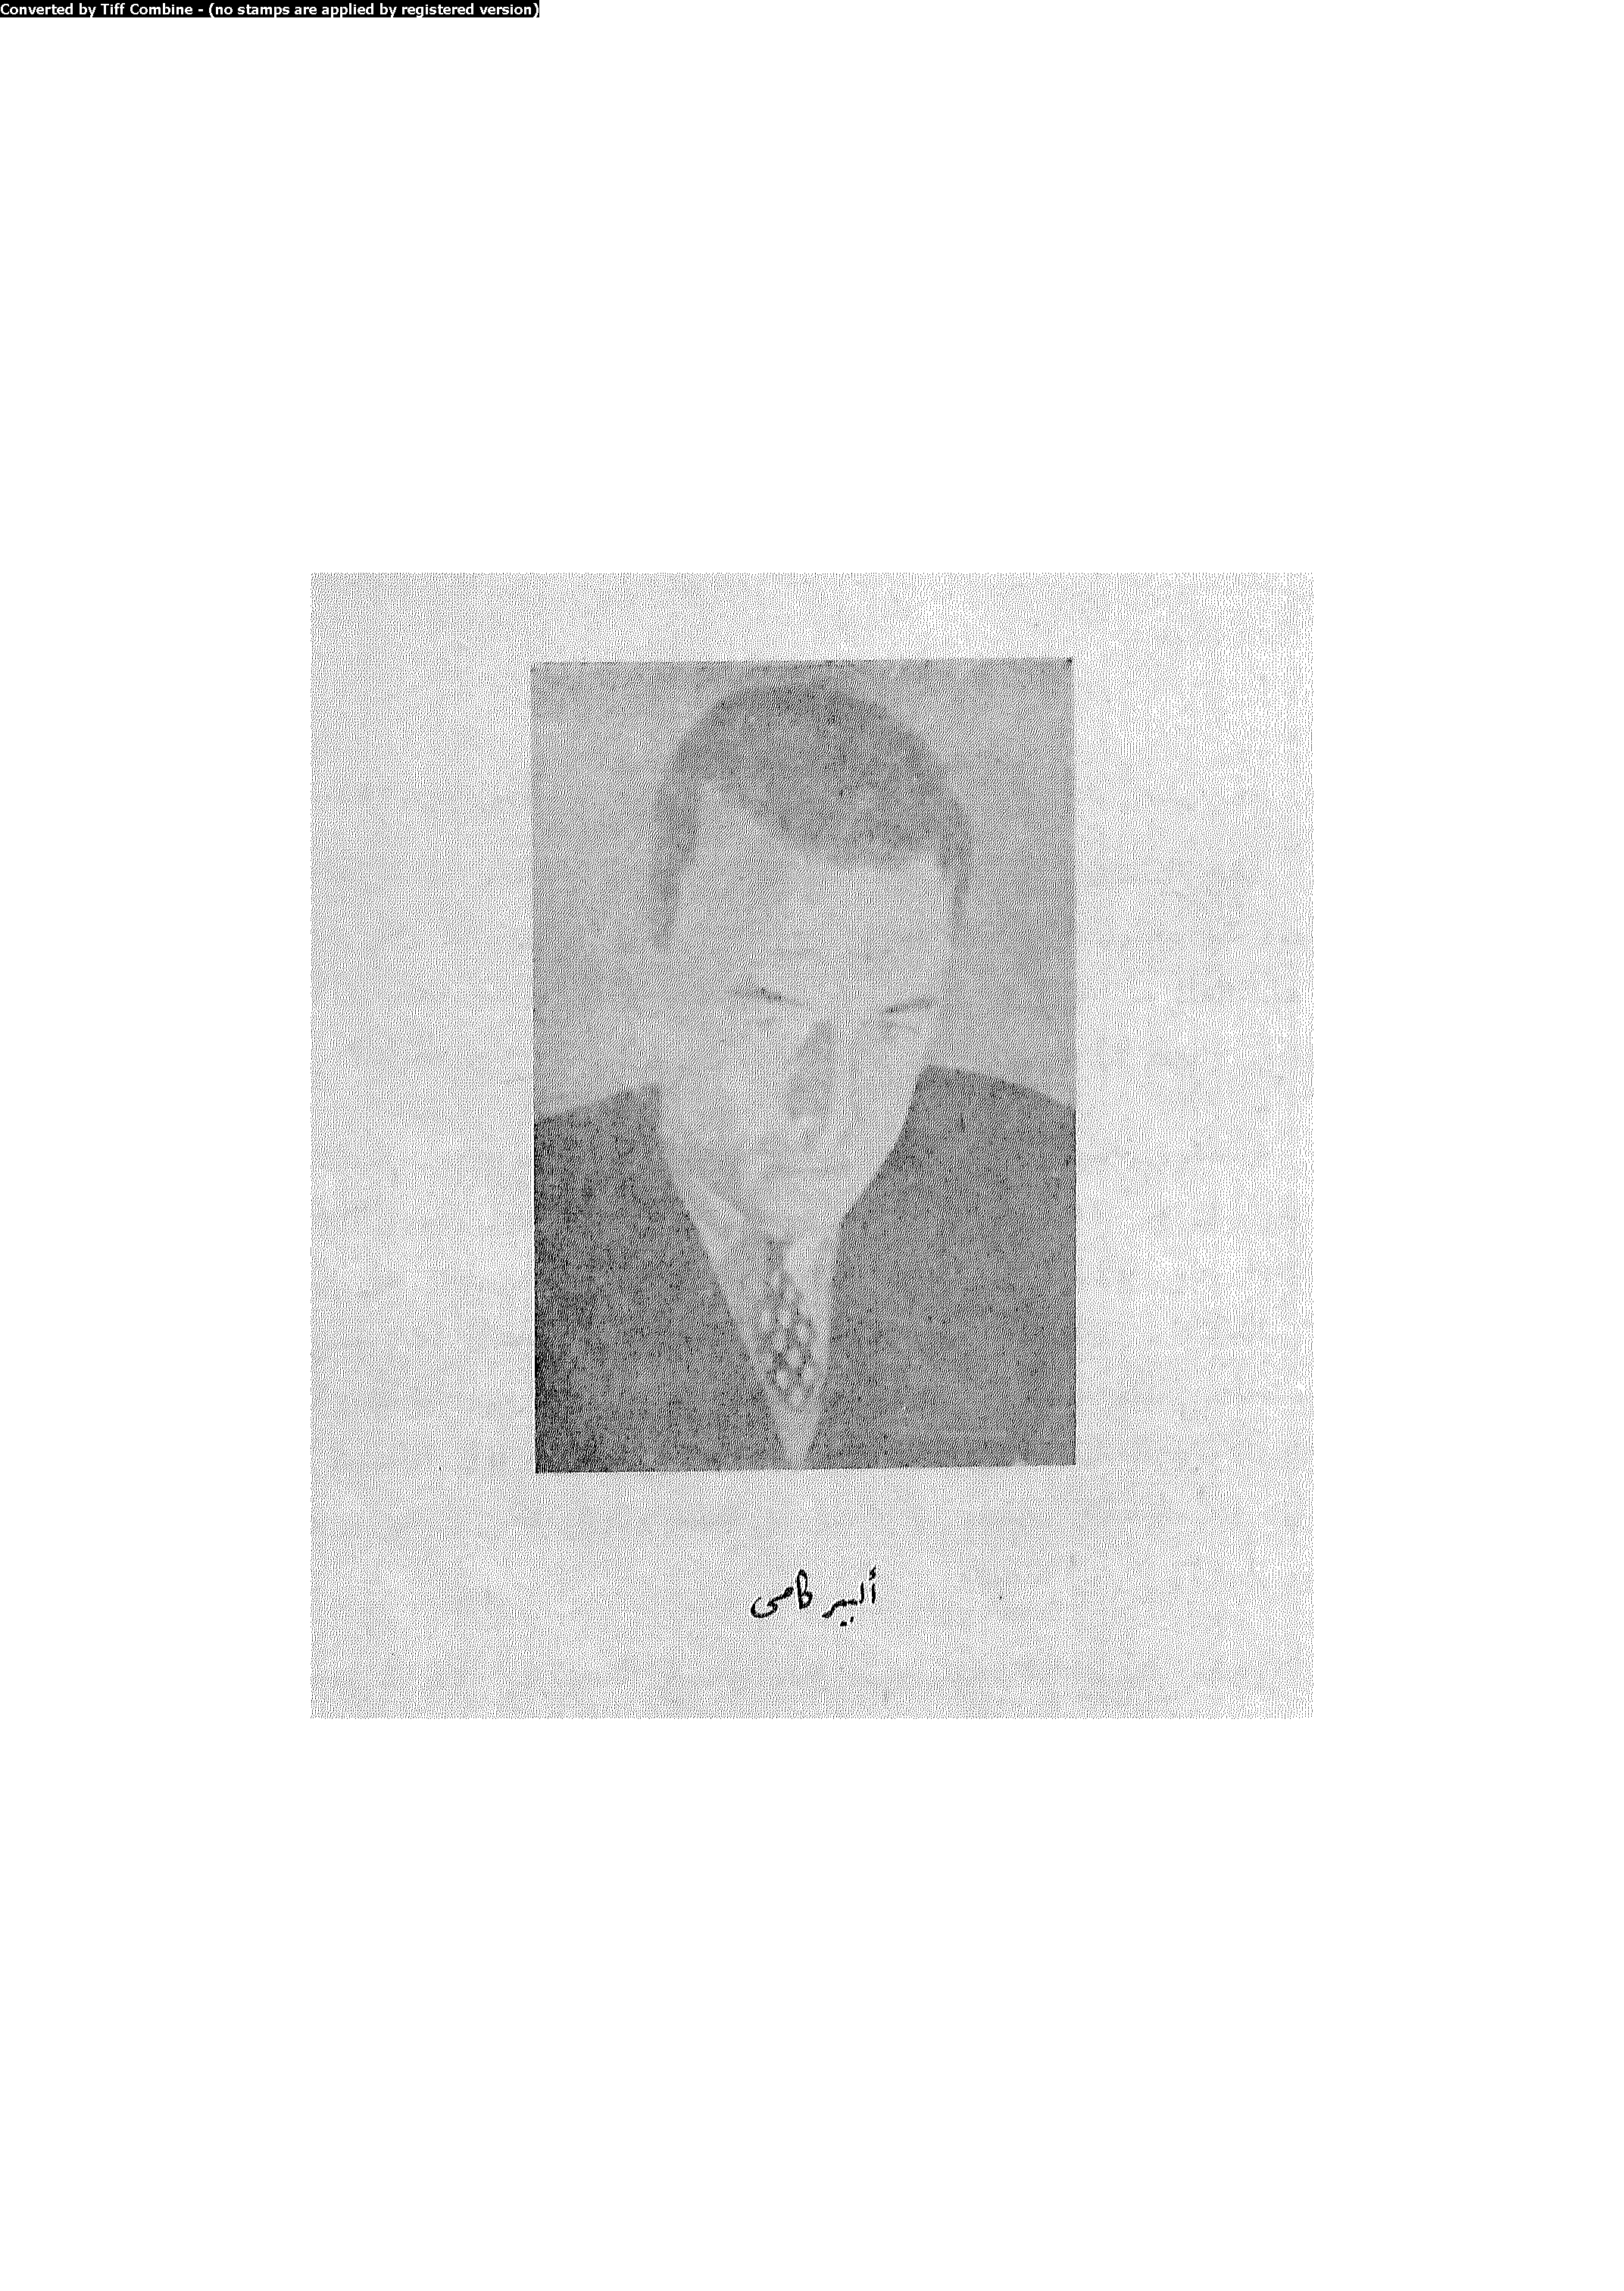 Converted by Tiff Combine - (no stamps are applied by registered version)
ألبير كامى